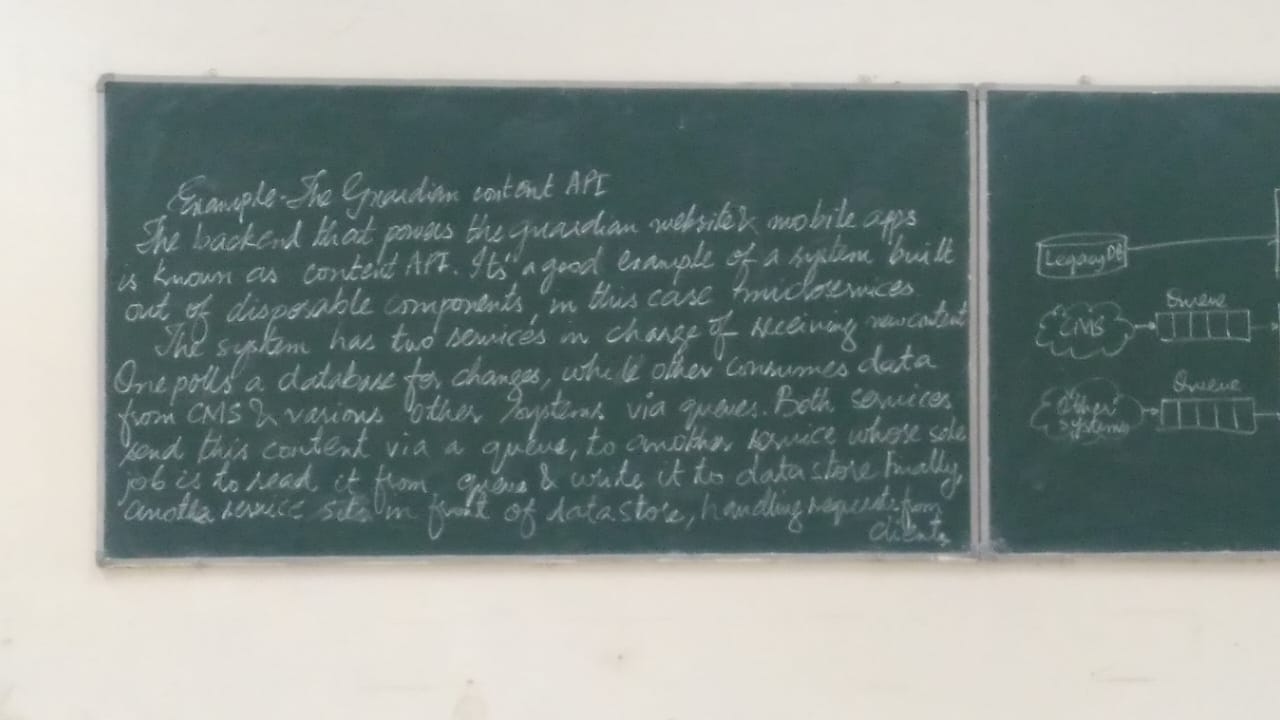 Example - The Guardian content API
The backend that powers the guardian website & mobile apps
is known as content API. It's a good example of a system built
out of disposable components, in this case microservices
The system has two services in charge of receiving new content
One polls a database for changes, while other consumes data
from CMS & various other systems via queues. Both services
send this content via a queue, to another service whose sole
job is to read it from queue & write it to data store finally,
another service sits in front of datastore, handling requests from
clients
Legacy DB
Queue
CMS
Queue
Other
systems